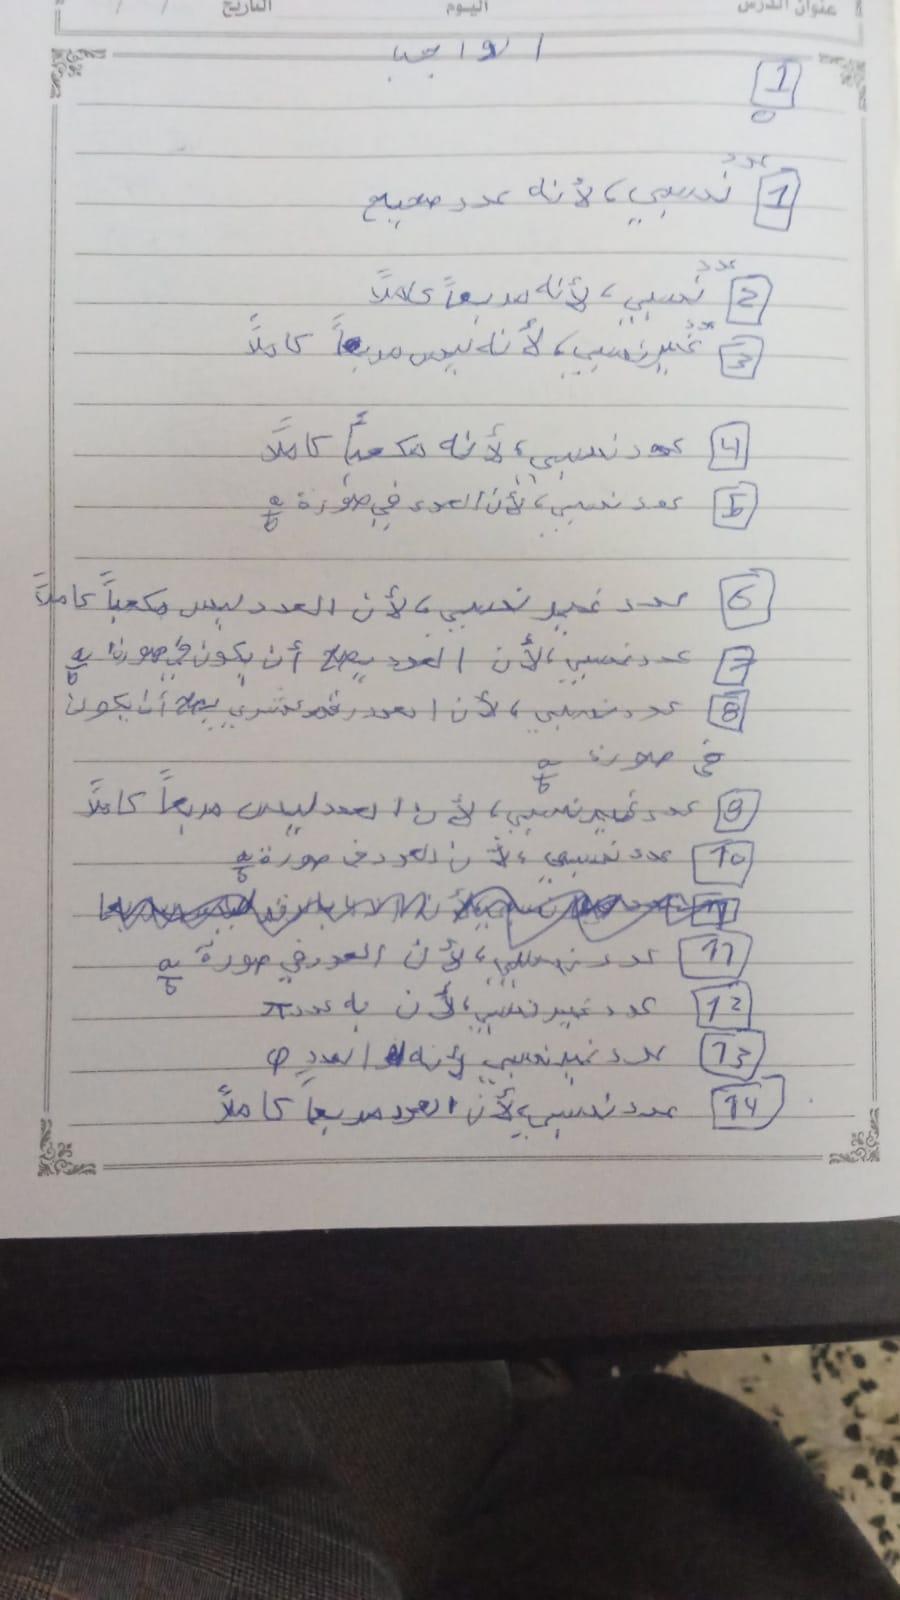 عنوان الدرس اليوم التاريخ / /
الواجب
1
1 عدد نسبي، لأنه عدد صحيح
2 عدد نسبي، لأنه مربعاً كاملاً
3 عدد غير نسبي، لأنه ليس مربعاً كاملاً
4 عدد نسبي، لأنه مكعباً كاملاً
5 عدد نسبي، لأن العدد في صورة a/b
6 عدد غير نسبي، لأن العدد ليس مكعباً كاملاً
7 عدد نسبي، لأن العدد يصح أن يكون في صورة a/b
8 عدد نسبي، لأن العدد رقم عشري يصح أن يكون
في صورة a/b
9 عدد غير نسبي، لأن العدد ليس مربعاً كاملاً
10 عدد نسبي، لأن العدد في صورة a/b
11 عدد نسبي، لأن العدد في صورة a/b
12 عدد غير نسبي، لأن به عدد π
13 عدد غير نسبي لأنه العدد φ
14 عدد نسبي، لأن العدد مربعاً كاملاً